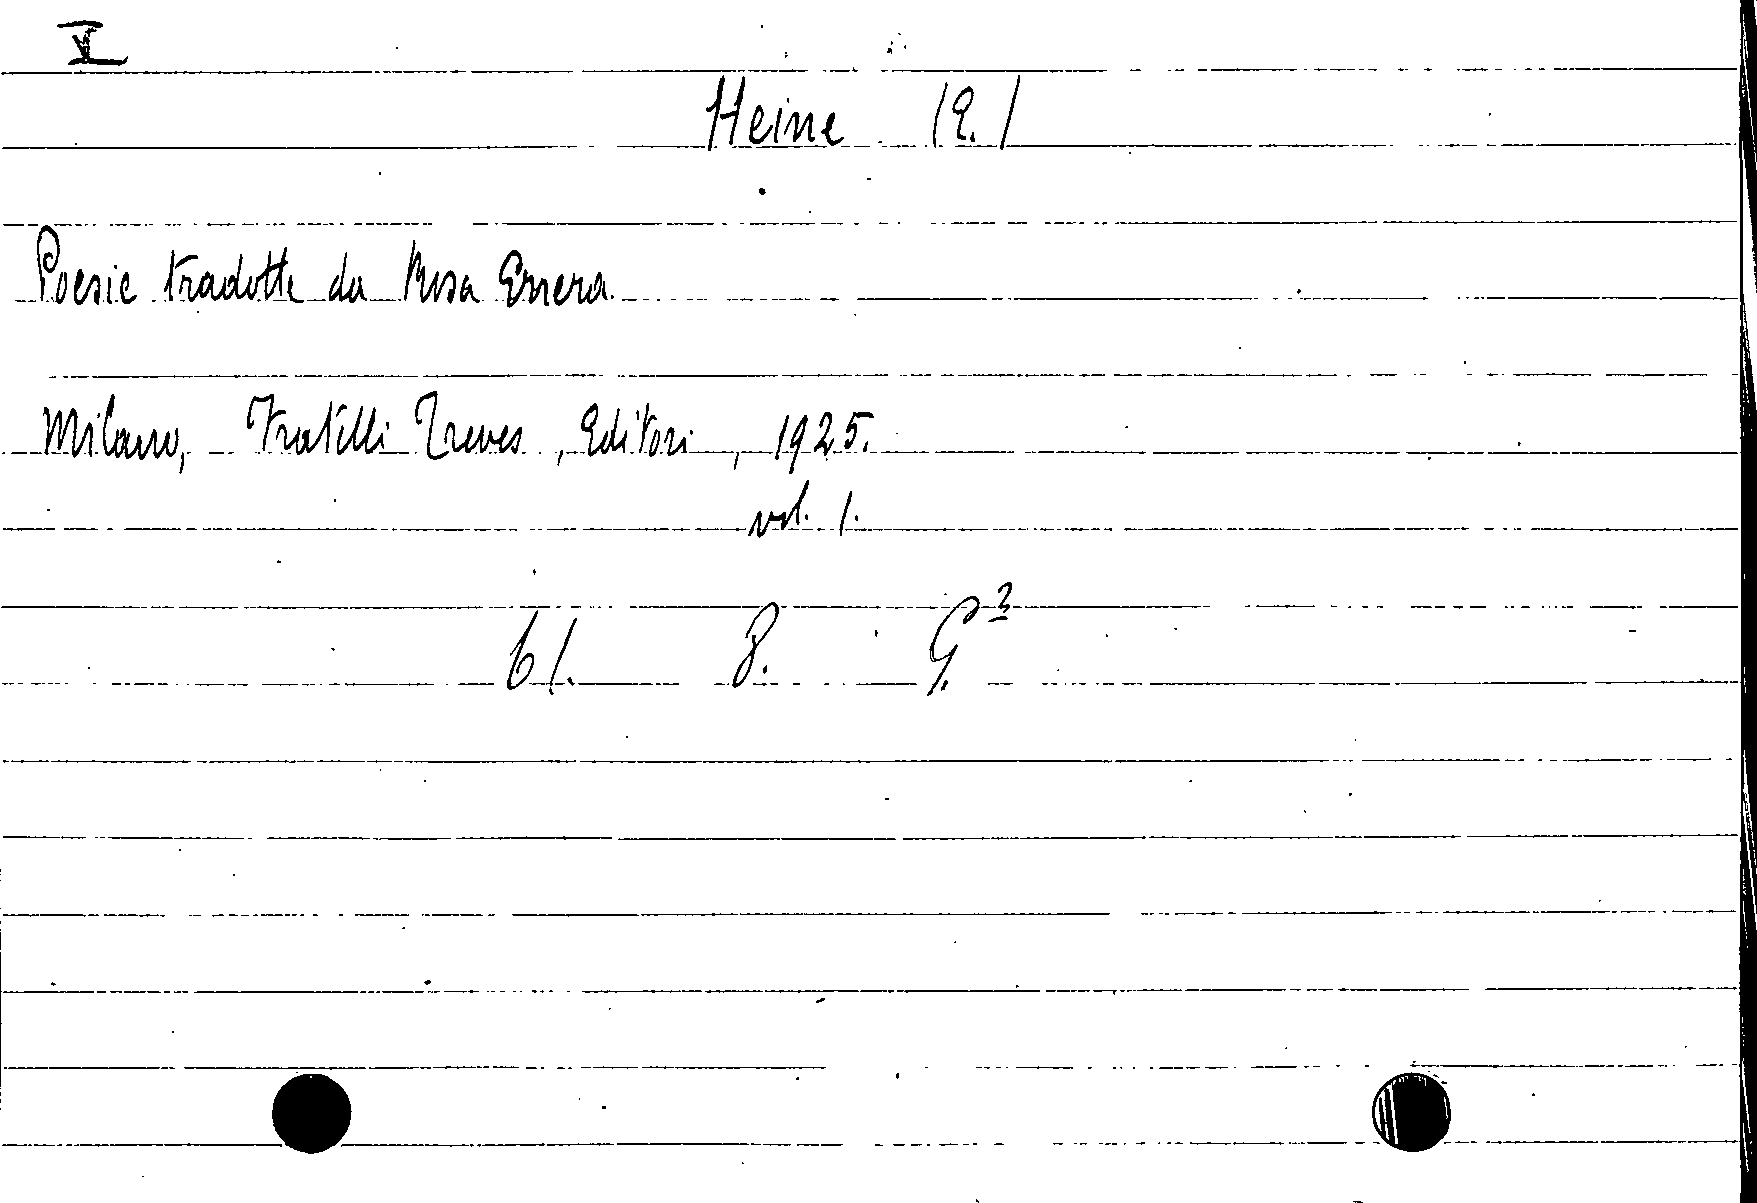 V
Heine (E.)
Poesie tradotte da Rosa Errera.
Milano, Fratelli Treves, Editori, 1925.
vol. 1.
61. 8.